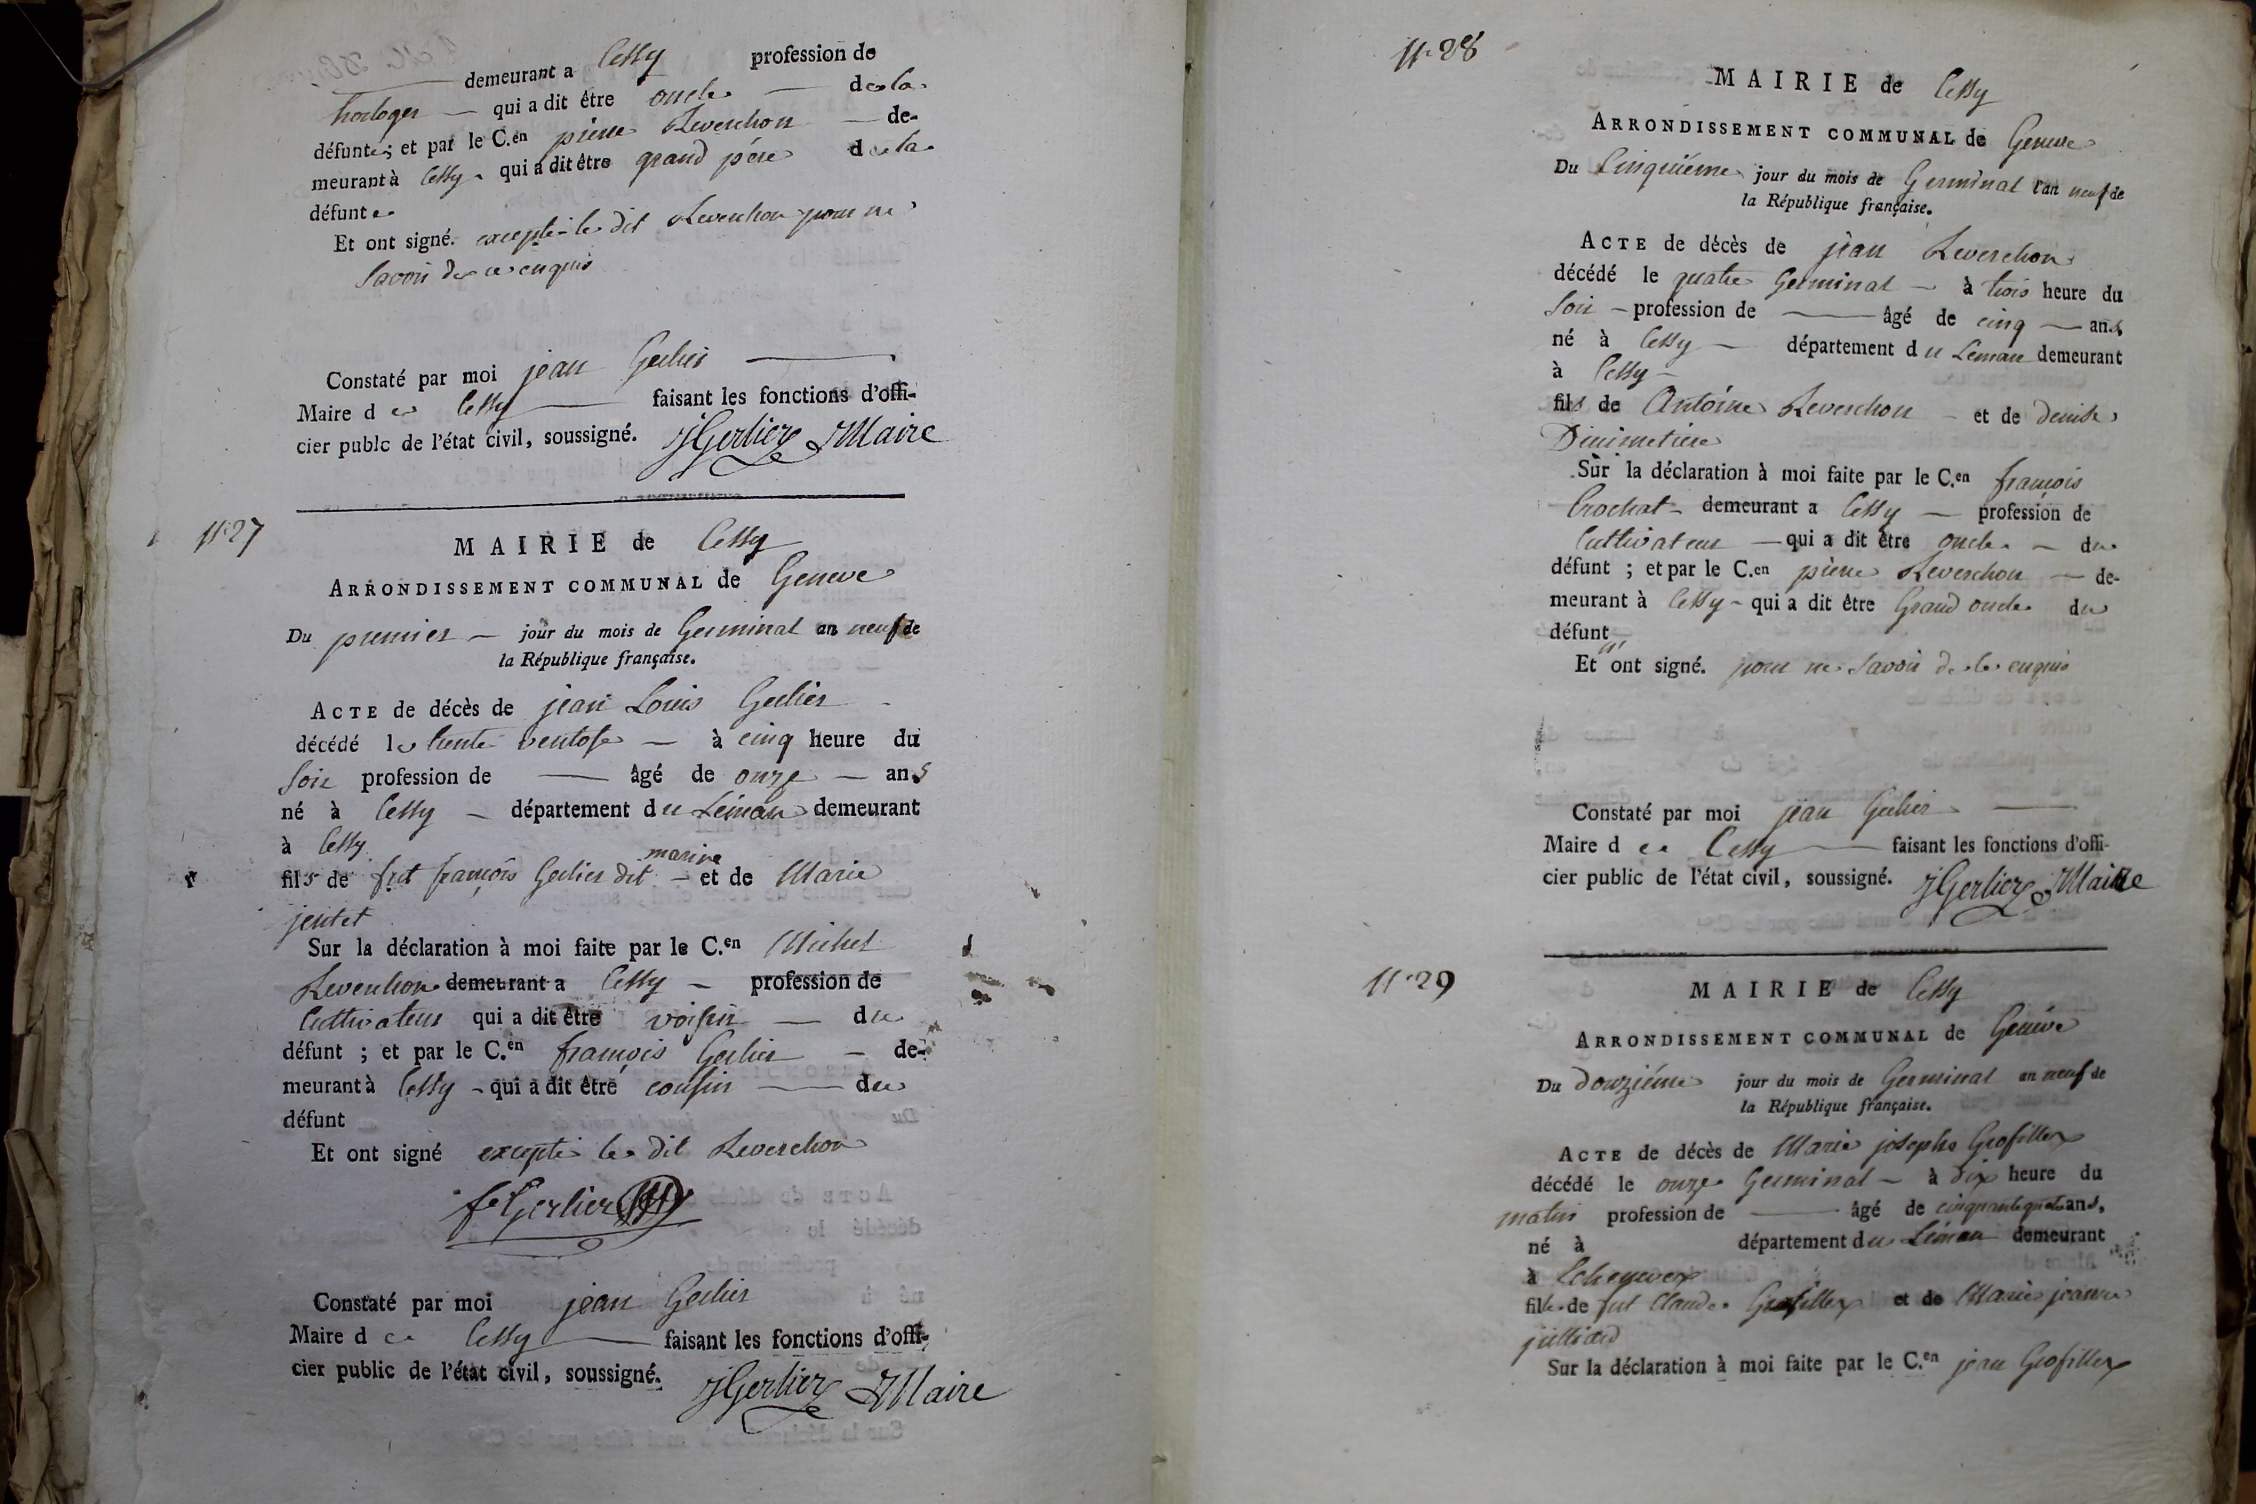 demeurant a Cessy profession de
horloger — qui a dit être oncle — de la
défunte; et par le C.en pierre Reverchon — de-
meurant à Cessy - qui a dit être grand père de la
défunte
Et ont signé. excepté le dit Reverchon pour ne
Savoir de ce enquis
Constaté par moi jean Gerlier —
Maire de Cessy — faisant les fonctions d'offi-
cier publc de l'état civil, soussigné. JGerlier Maire
N° 27
MAIRIE de Cessy
ARRONDISSEMENT COMMUNAL de Geneve
Du premier — jour du mois de Germinal an neuf de
la République française.
ACTE de décès de jean Louis Gerlier
décédé le trente ventose — à cinq heure du
Soir profession de — âgé de onze — ans
né à Cessy — département du Léman demeurant
à Cessy
marine
fils de fut françois Gerlier dit — et de Marie
jentet
Sur la déclaration à moi faite par le C.en Michel
Reverchon demeurant a Cessy — profession de
Cultivateur qui a dit être voisin — du
défunt ; et par le C.en françois Gerlier — de-
meurant à Cessy - qui a dit être cousin — du
défunt
Et ont signé excepté le dit Reverchon
fs Gerlier
Constaté par moi jean Gerlier
Maire de Cessy — faisant les fonctions d'offi-
cier public de l'état civil, soussigné. JGerlier Maire
N° 28
MAIRIE de Cessy
ARRONDISSEMENT COMMUNAL de Geneve
Du Cinquième jour du mois de Germinal l'an neuf de
la République française.
ACTE de décès de jean Reverchon
décédé le quatre Germinal — à trois heure du
Soir — profession de — âgé de cinq — ans
né à Cessy — département du Leman demeurant
à Cessy —
fils de Antoine Reverchon — et de denise
Dinimetiere
Sur la déclaration à moi faite par le C.en françois
Crochat - demeurant a Cessy — profession de
Cultivateur — qui a dit être oncle — du
défunt ; et par le C.en pierre Reverchon — de-
meurant à Cessy - qui a dit être Grand oncle du
défunt
n'
Et ont signé. pour ne Savoir de ce enquis
Constaté par moi jean Gerlier —
Maire de Cessy — faisant les fonctions d'offi-
cier public de l'état civil, soussigné. JGerlier Maire
N° 29
MAIRIE de Cessy
ARRONDISSEMENT COMMUNAL de Genève
Du douzième jour du mois de Germinal an neuf de
la République française.
ACTE de décès de Marie josephe Grosfillex
décédé le onze Germinal — à dix heure du
matin profession de — âgé de cinquante quatre ans,
né à département du Léman demeurant
à Echenevex
fille de fut Claude Grosfillex et de Marie jeanne
julliard
Sur la déclaration à moi faite par le C.en jean Grosfillex